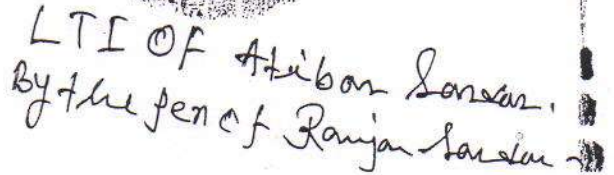 LTI OF Atibar Sardar.
By the pen of Ranjan Sardar